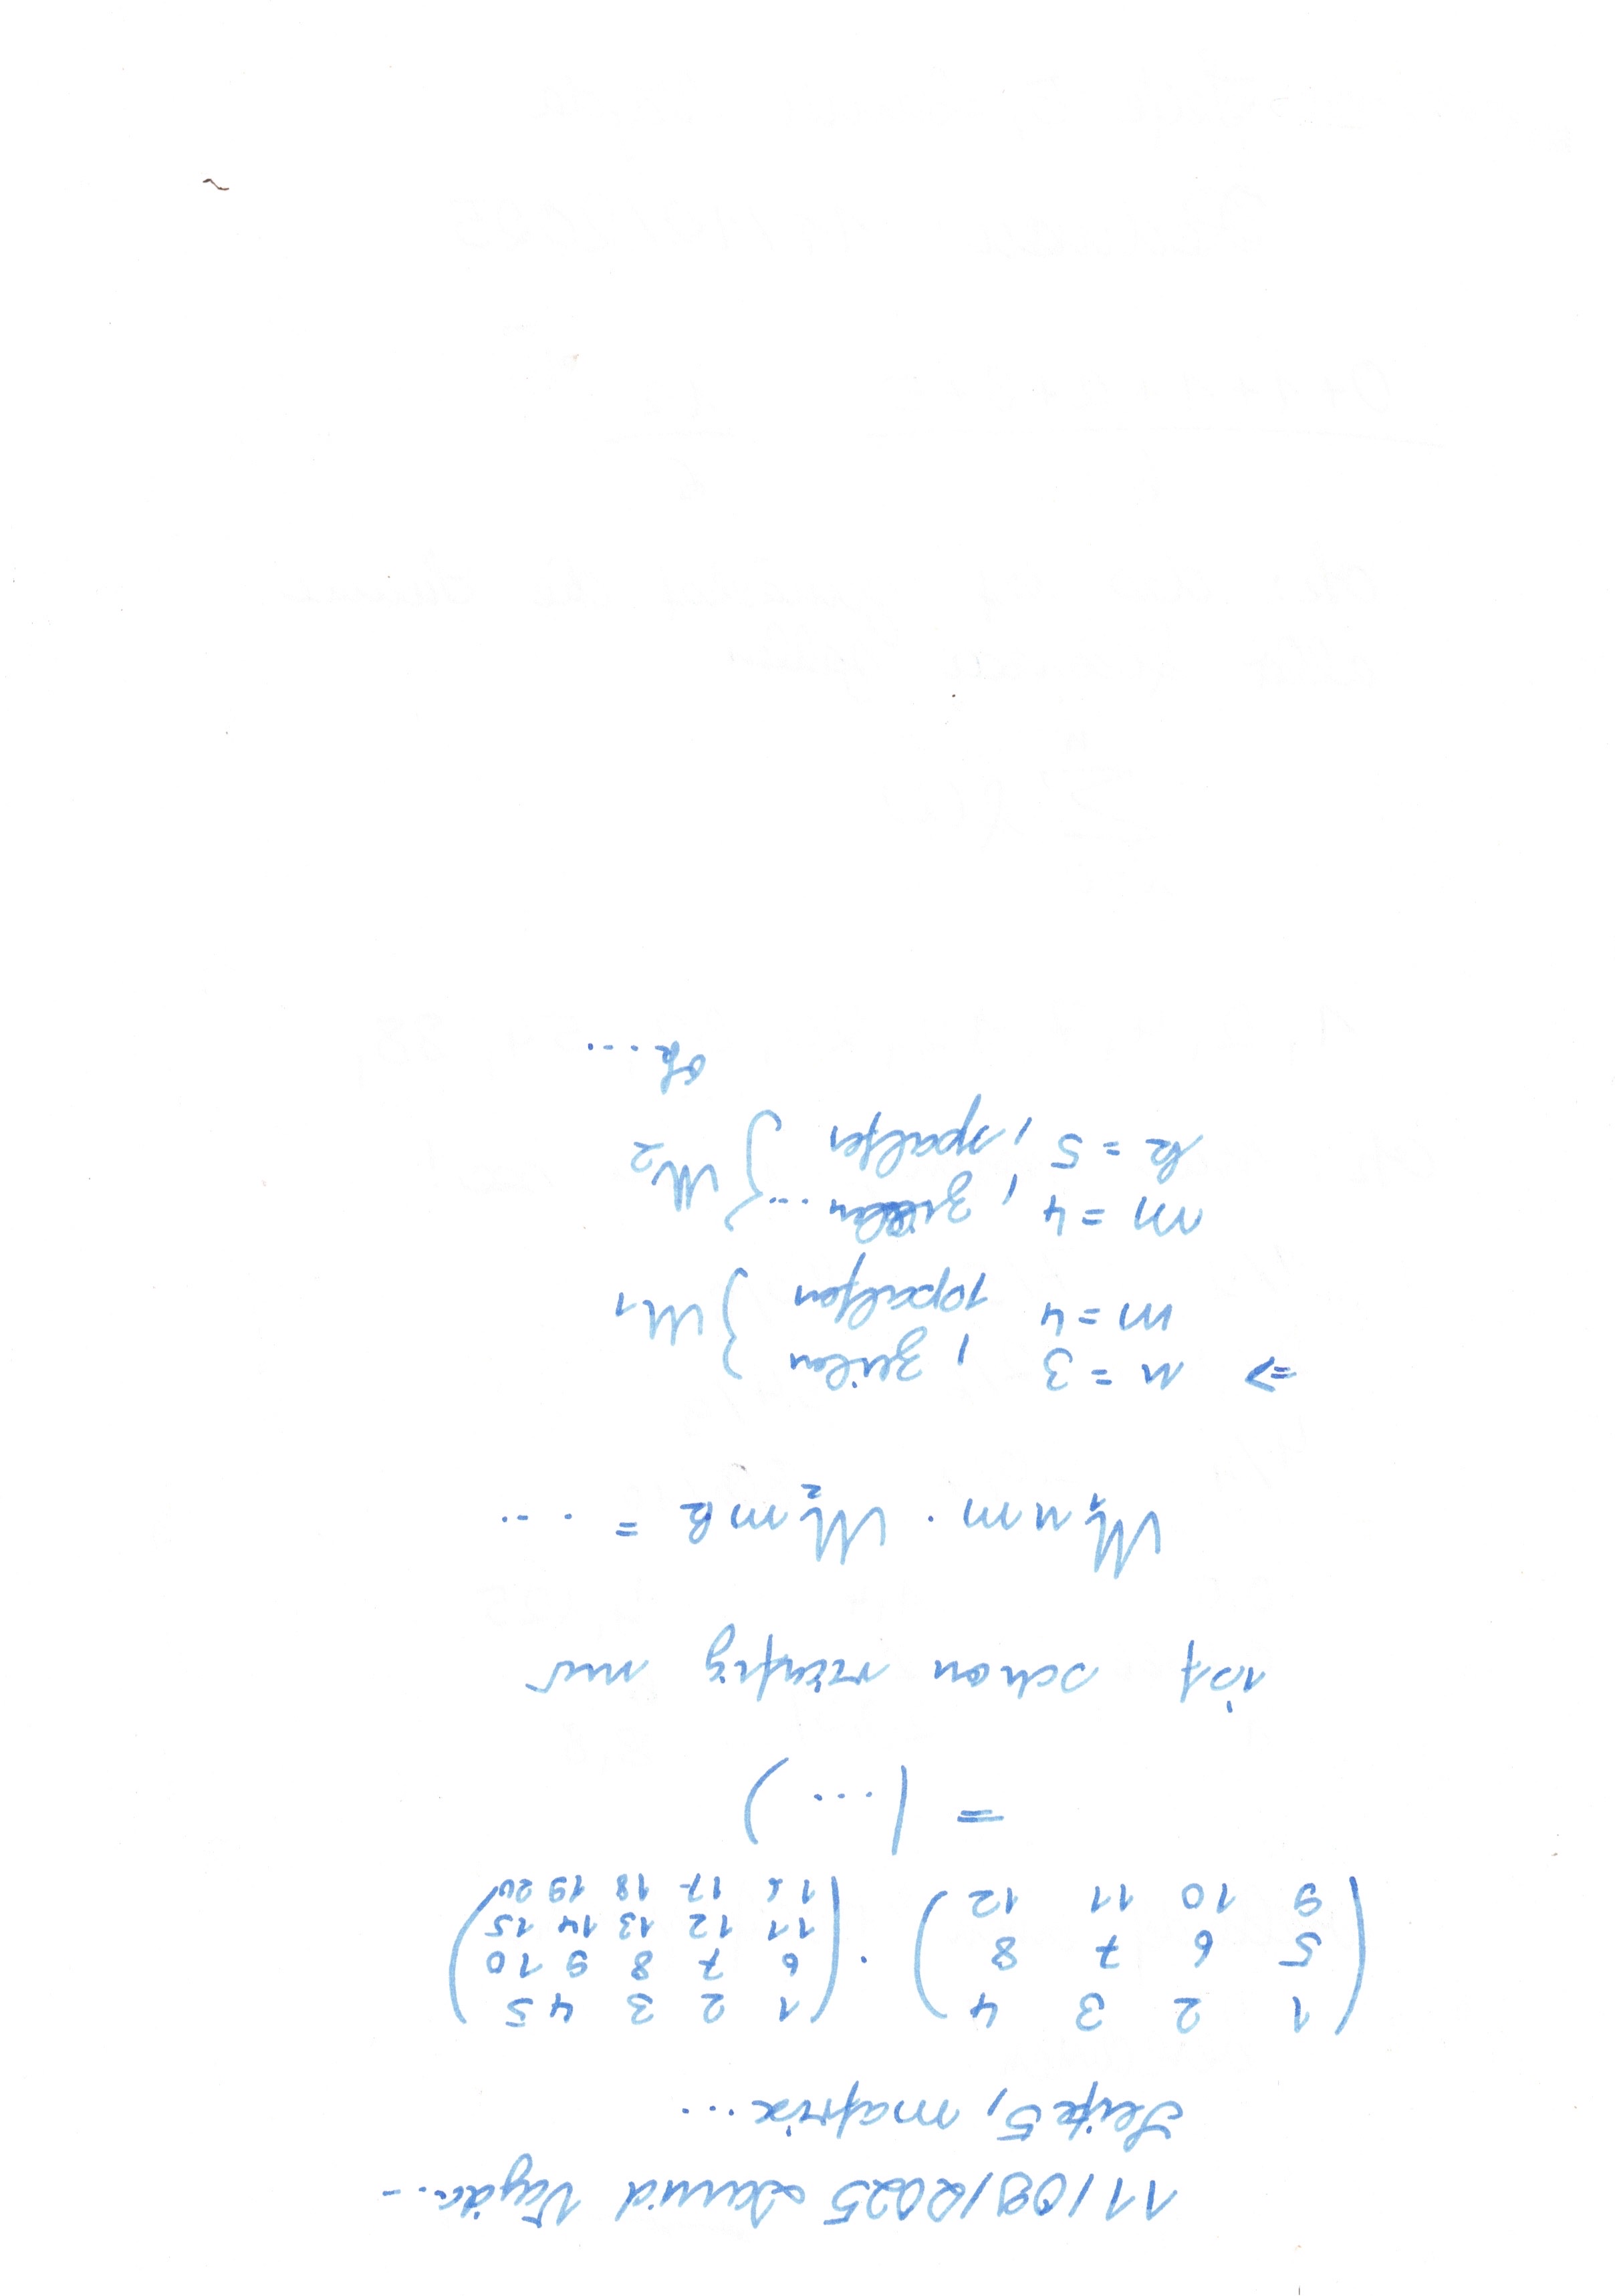 11/09/2025 David Vajda...
Seite 5, matrix ...
( 1 2 3 4 ) ( 1 2 3 4 5 )
( 5 6 7 8 ) · ( 6 7 8 9 10 )
( 9 10 11 12 ) ( 11 12 13 14 15 )
( 16 17 18 19 20 )
= (...)
ist schon richtig nur
M1 n m · M2 m k = ...
=> n = 3 , zeilen } M1
m = 4 spalten
m = 4 , zeilen ... } M2
k = 5 , spalten
ok ...